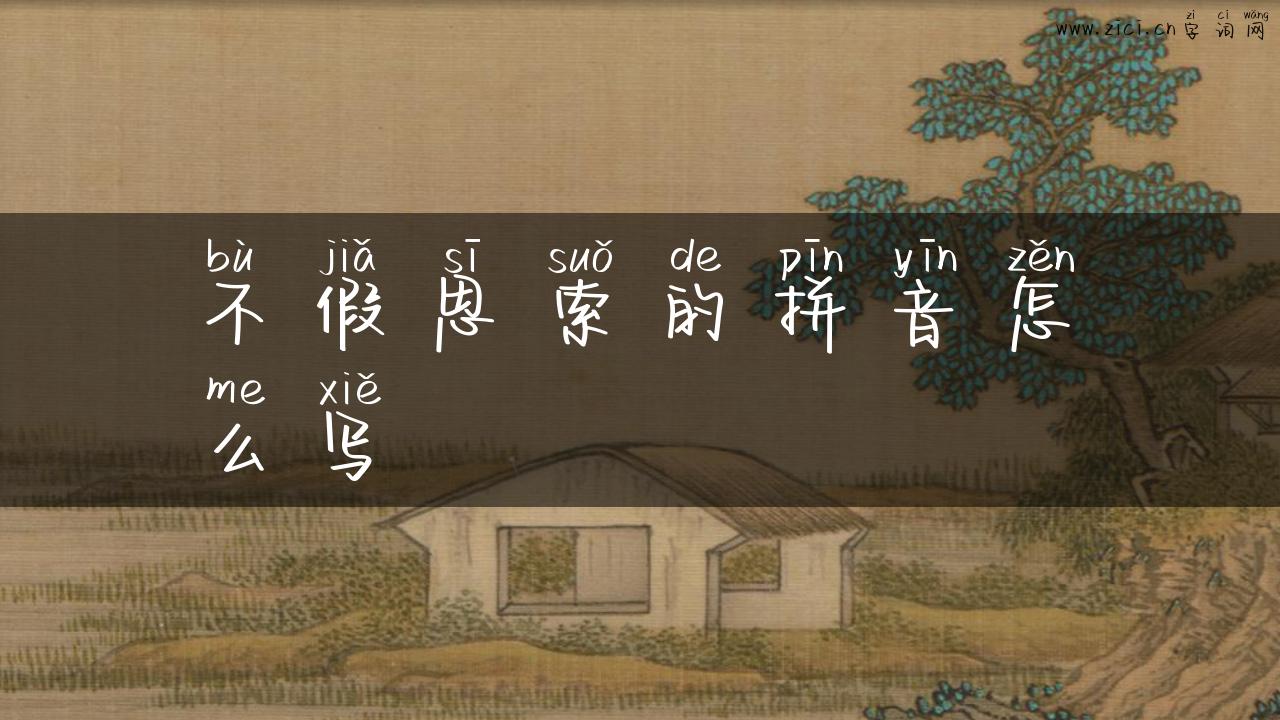 www.zici.cn zì cí wǎng
字 词 网
bù jiǎ sī suǒ de pīn yīn zěn
不 假 思 索 的 拼 音 怎
me xiě
么 写